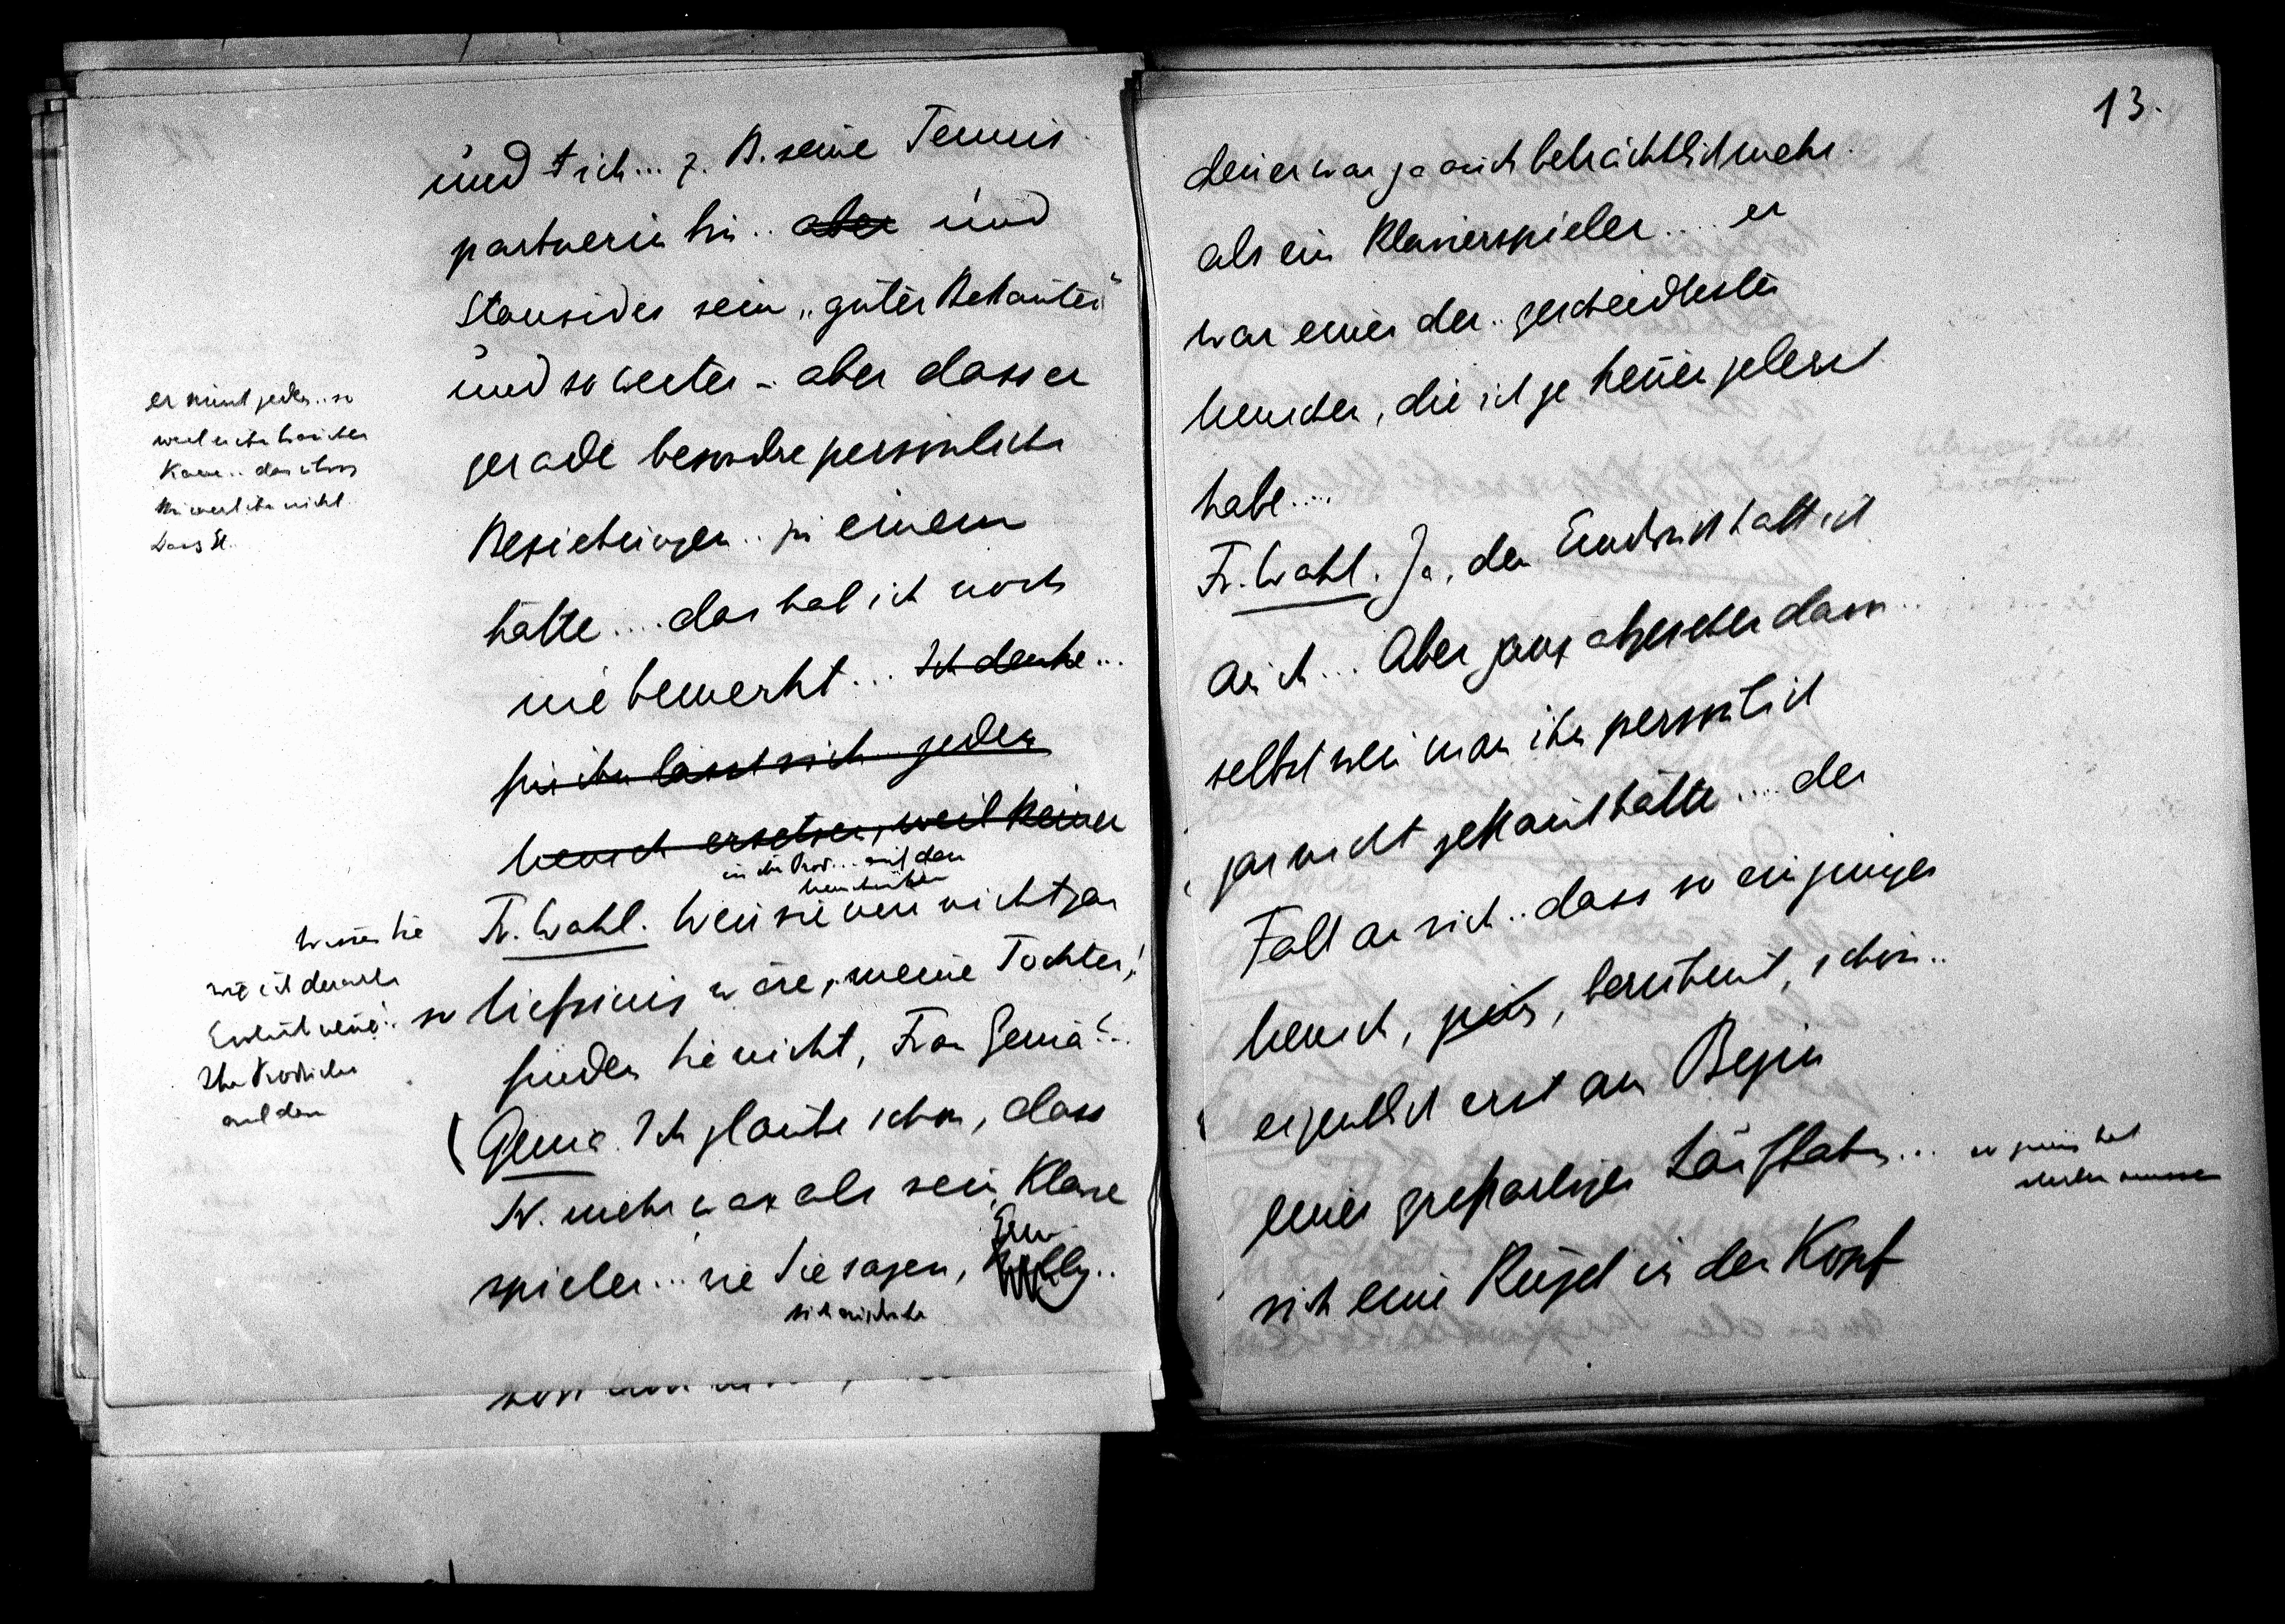 und ich... z. B. seine Tennis
partnerin bin.. aber und
Stanzides sein „guter Bekannter“
und so weiter - aber dass er
gerade besondre persönliche
Beziehungen.. zu einem
hätte.... das hab ich noch
nie bemerkt... Ich denke...
für ihn lässt sich jeder
Mensch ersetzen, weil keiner
er nimt jeden.. so
weil er ihn brauchen
kann..
in der
Fr. Wahl. Wenn sie nur nicht gar
so tiefsinnig wäre, meine Tochter!
finden Sie nicht, Frau Genia?..
Wissen Sie
wie ich
auf den
Genia. Ich glaube schon, dass
K. mehr war als sein Klavier
spieler... wie Sie sagen,
13.
denn er war ja auch beträchtlich mehr
als ein Klavierspieler.... er
war einer der.. gescheidtesten
Menschen, die ich je kennen gelernt
habe....
Fr. Wahl. Ja, den Eindruck hatt ich
auch... Aber ganz abgesehen davon..
selbst wenn man ihn persönlich
gar nicht gekannt hätte.... der
Fall an sich.. dass so ein junger
Mensch, , berühmt, schön..
eigentlich erst am Begin
einer grossartigen Laufbahn...
so jung hat
sterben müssen
sich eine Kugel in den Kopf